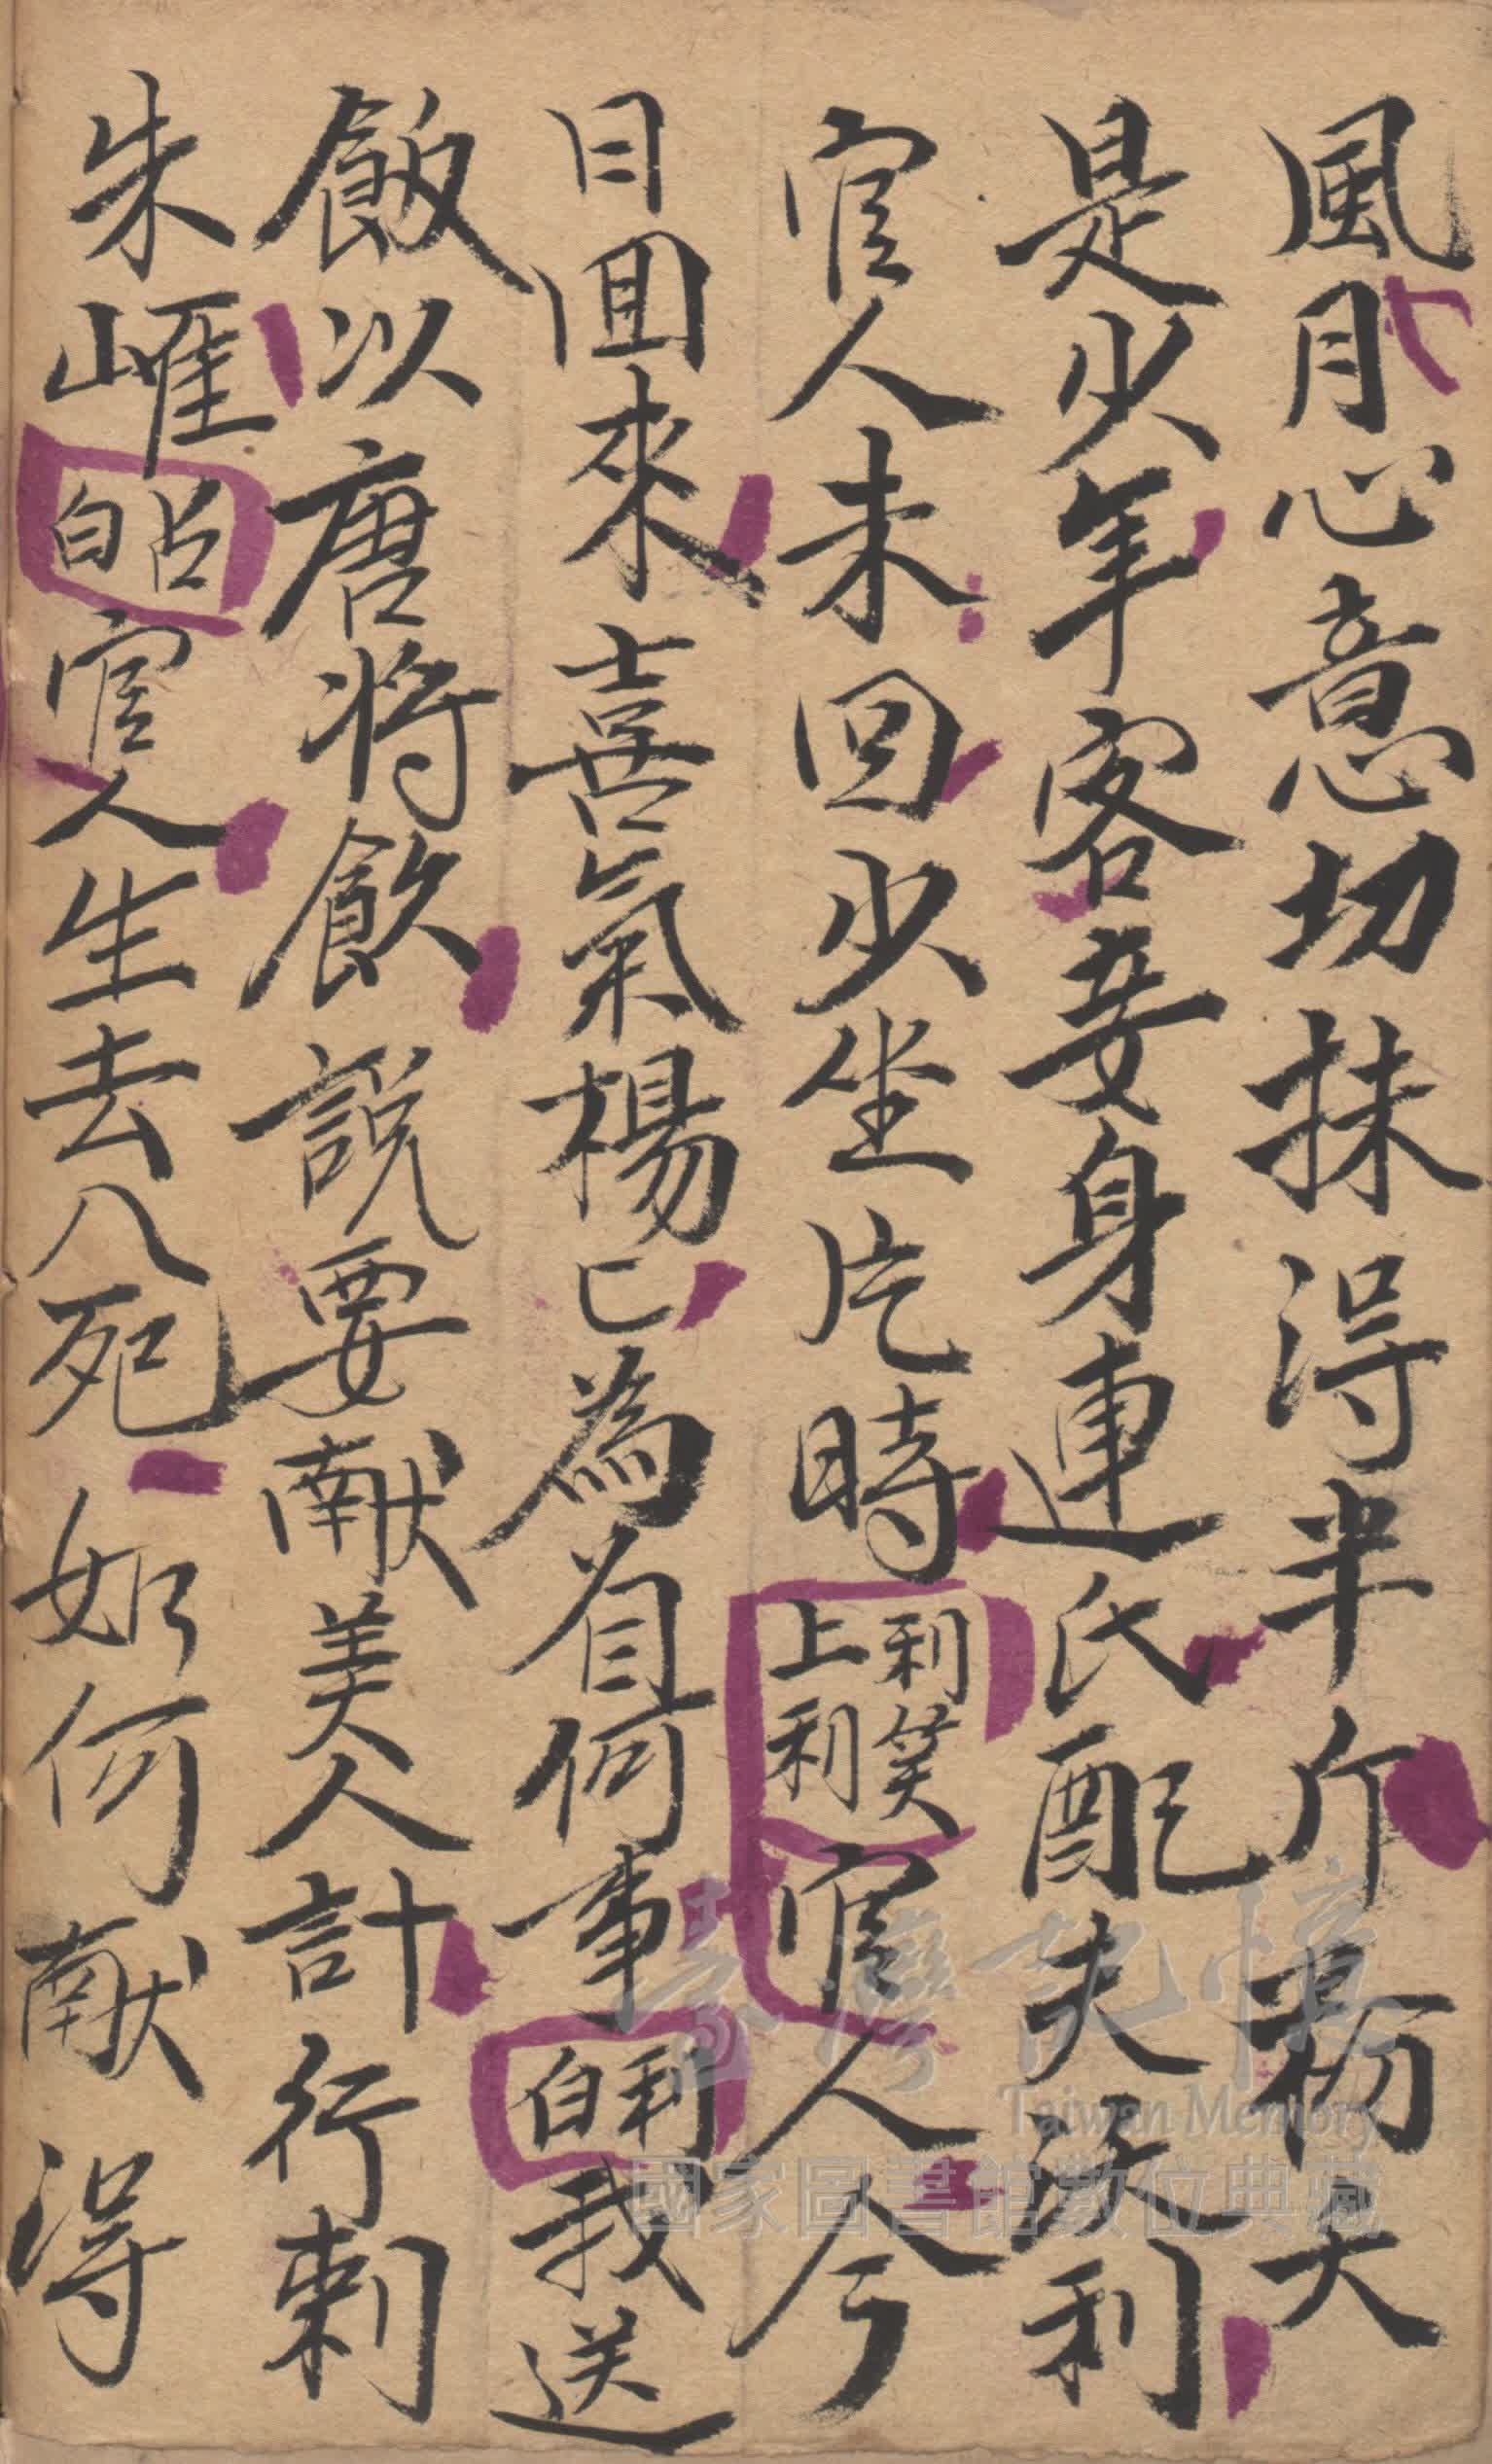 風月心意切抹得半斤粉大
是少年客妾身連氏配夫沒利
官人未回少坐片時利笑上利官人今
日回來喜氣楊已為着何事利白我送
飯以唐將飲說要献美人計行刺
朱崕呂白官人生去八死如何献得
臺灣記憶
Taiwan Memory
國家圖書館數位典藏